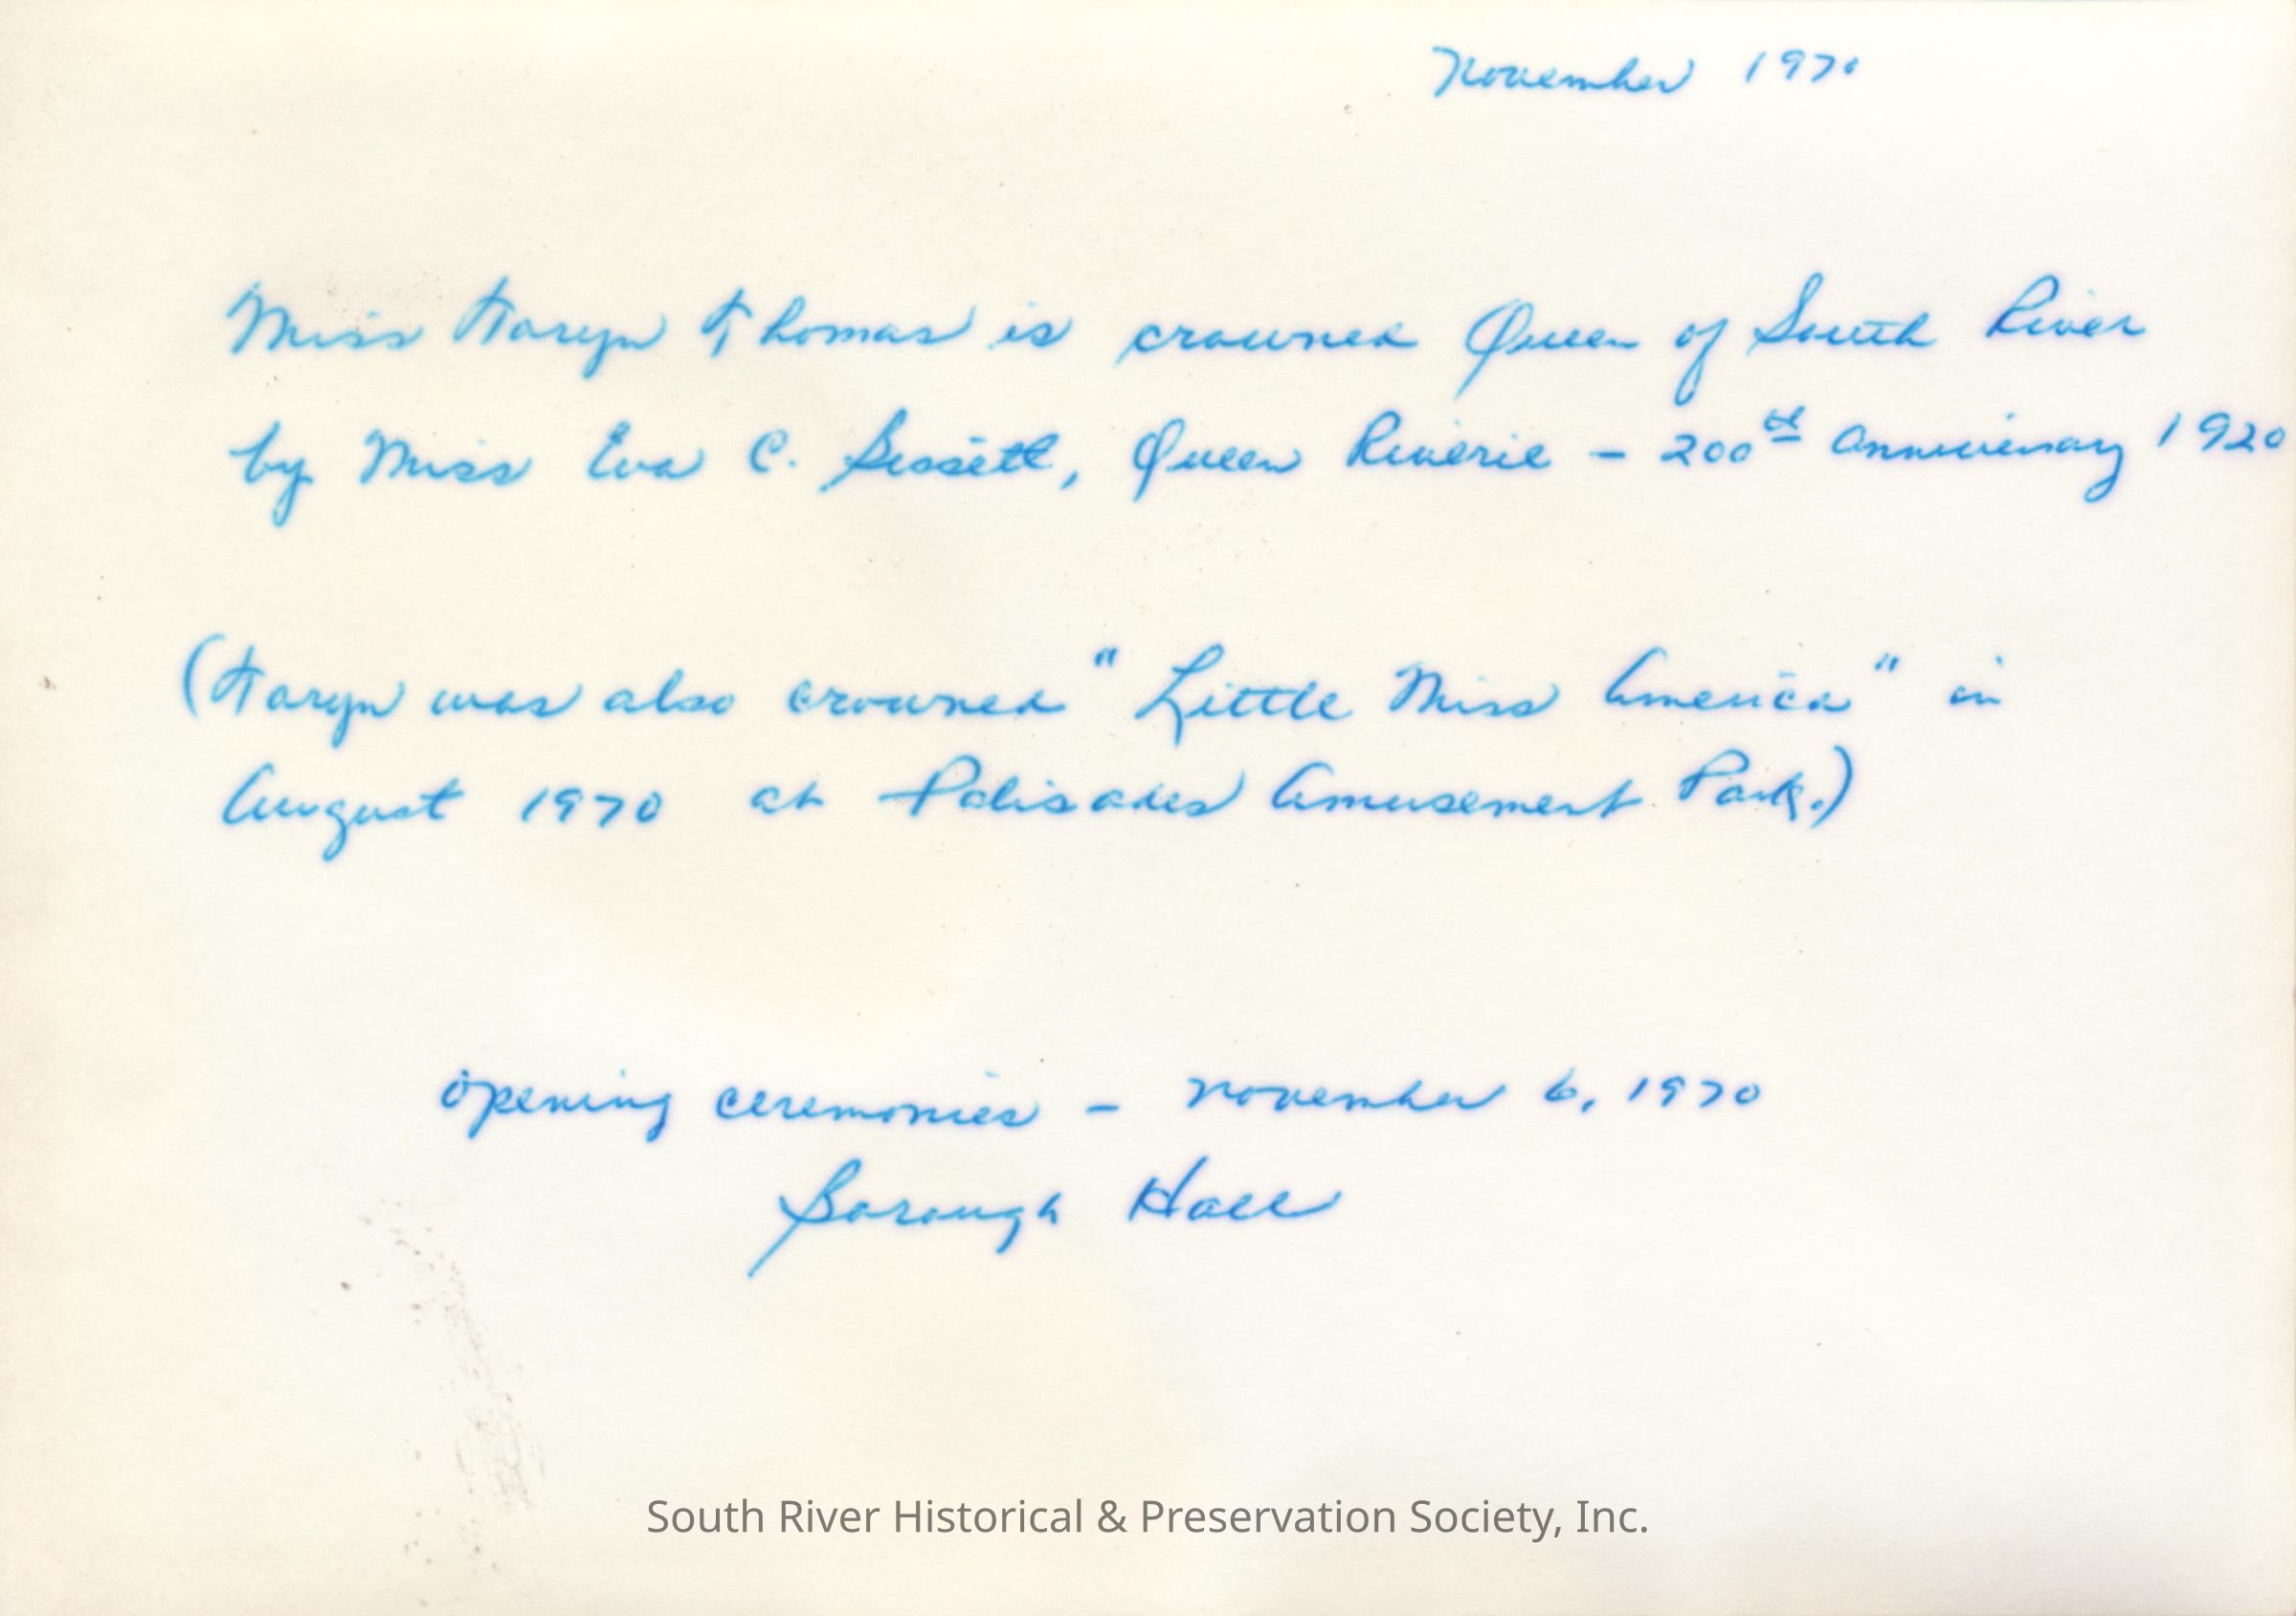 November 1970
Miss Taryn Thomas is crowned Queen of South River
by Miss Eva C. Bissett, Queen Riverie - 200th Anniversary 1920
(Taryn was also crowned "Little Miss America" in
August 1970 at Palisades Amusement Park.)
Opening ceremonies - November 6, 1970
Borough Hall
South River Historical & Preservation Society, Inc.